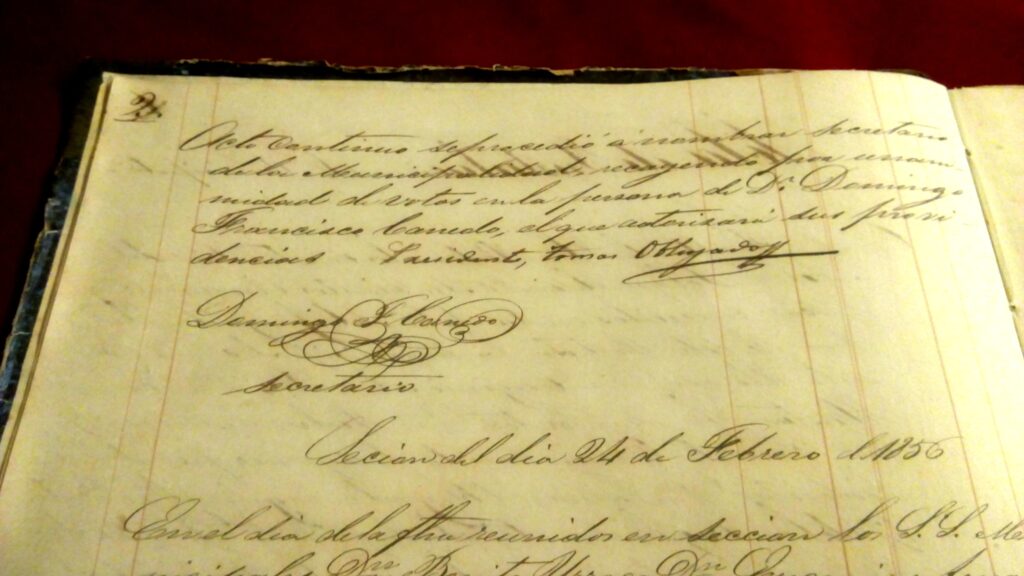 2.
Acto continuo se procedió á nombrar secretario
de la Municipalidad, recayendo por unani
midad de votos en la persona de Dn. Domingo
Francisco Canedo, el que autorisará sus provi
dencias Precidente, tomas Obligado
Domingo F. Canedo
secretario
Secion del dia 24 de Febrero de 1856
En el dia de la fha reunidos en seccion los S. S. Mu
nicipales Dn Benito Dn